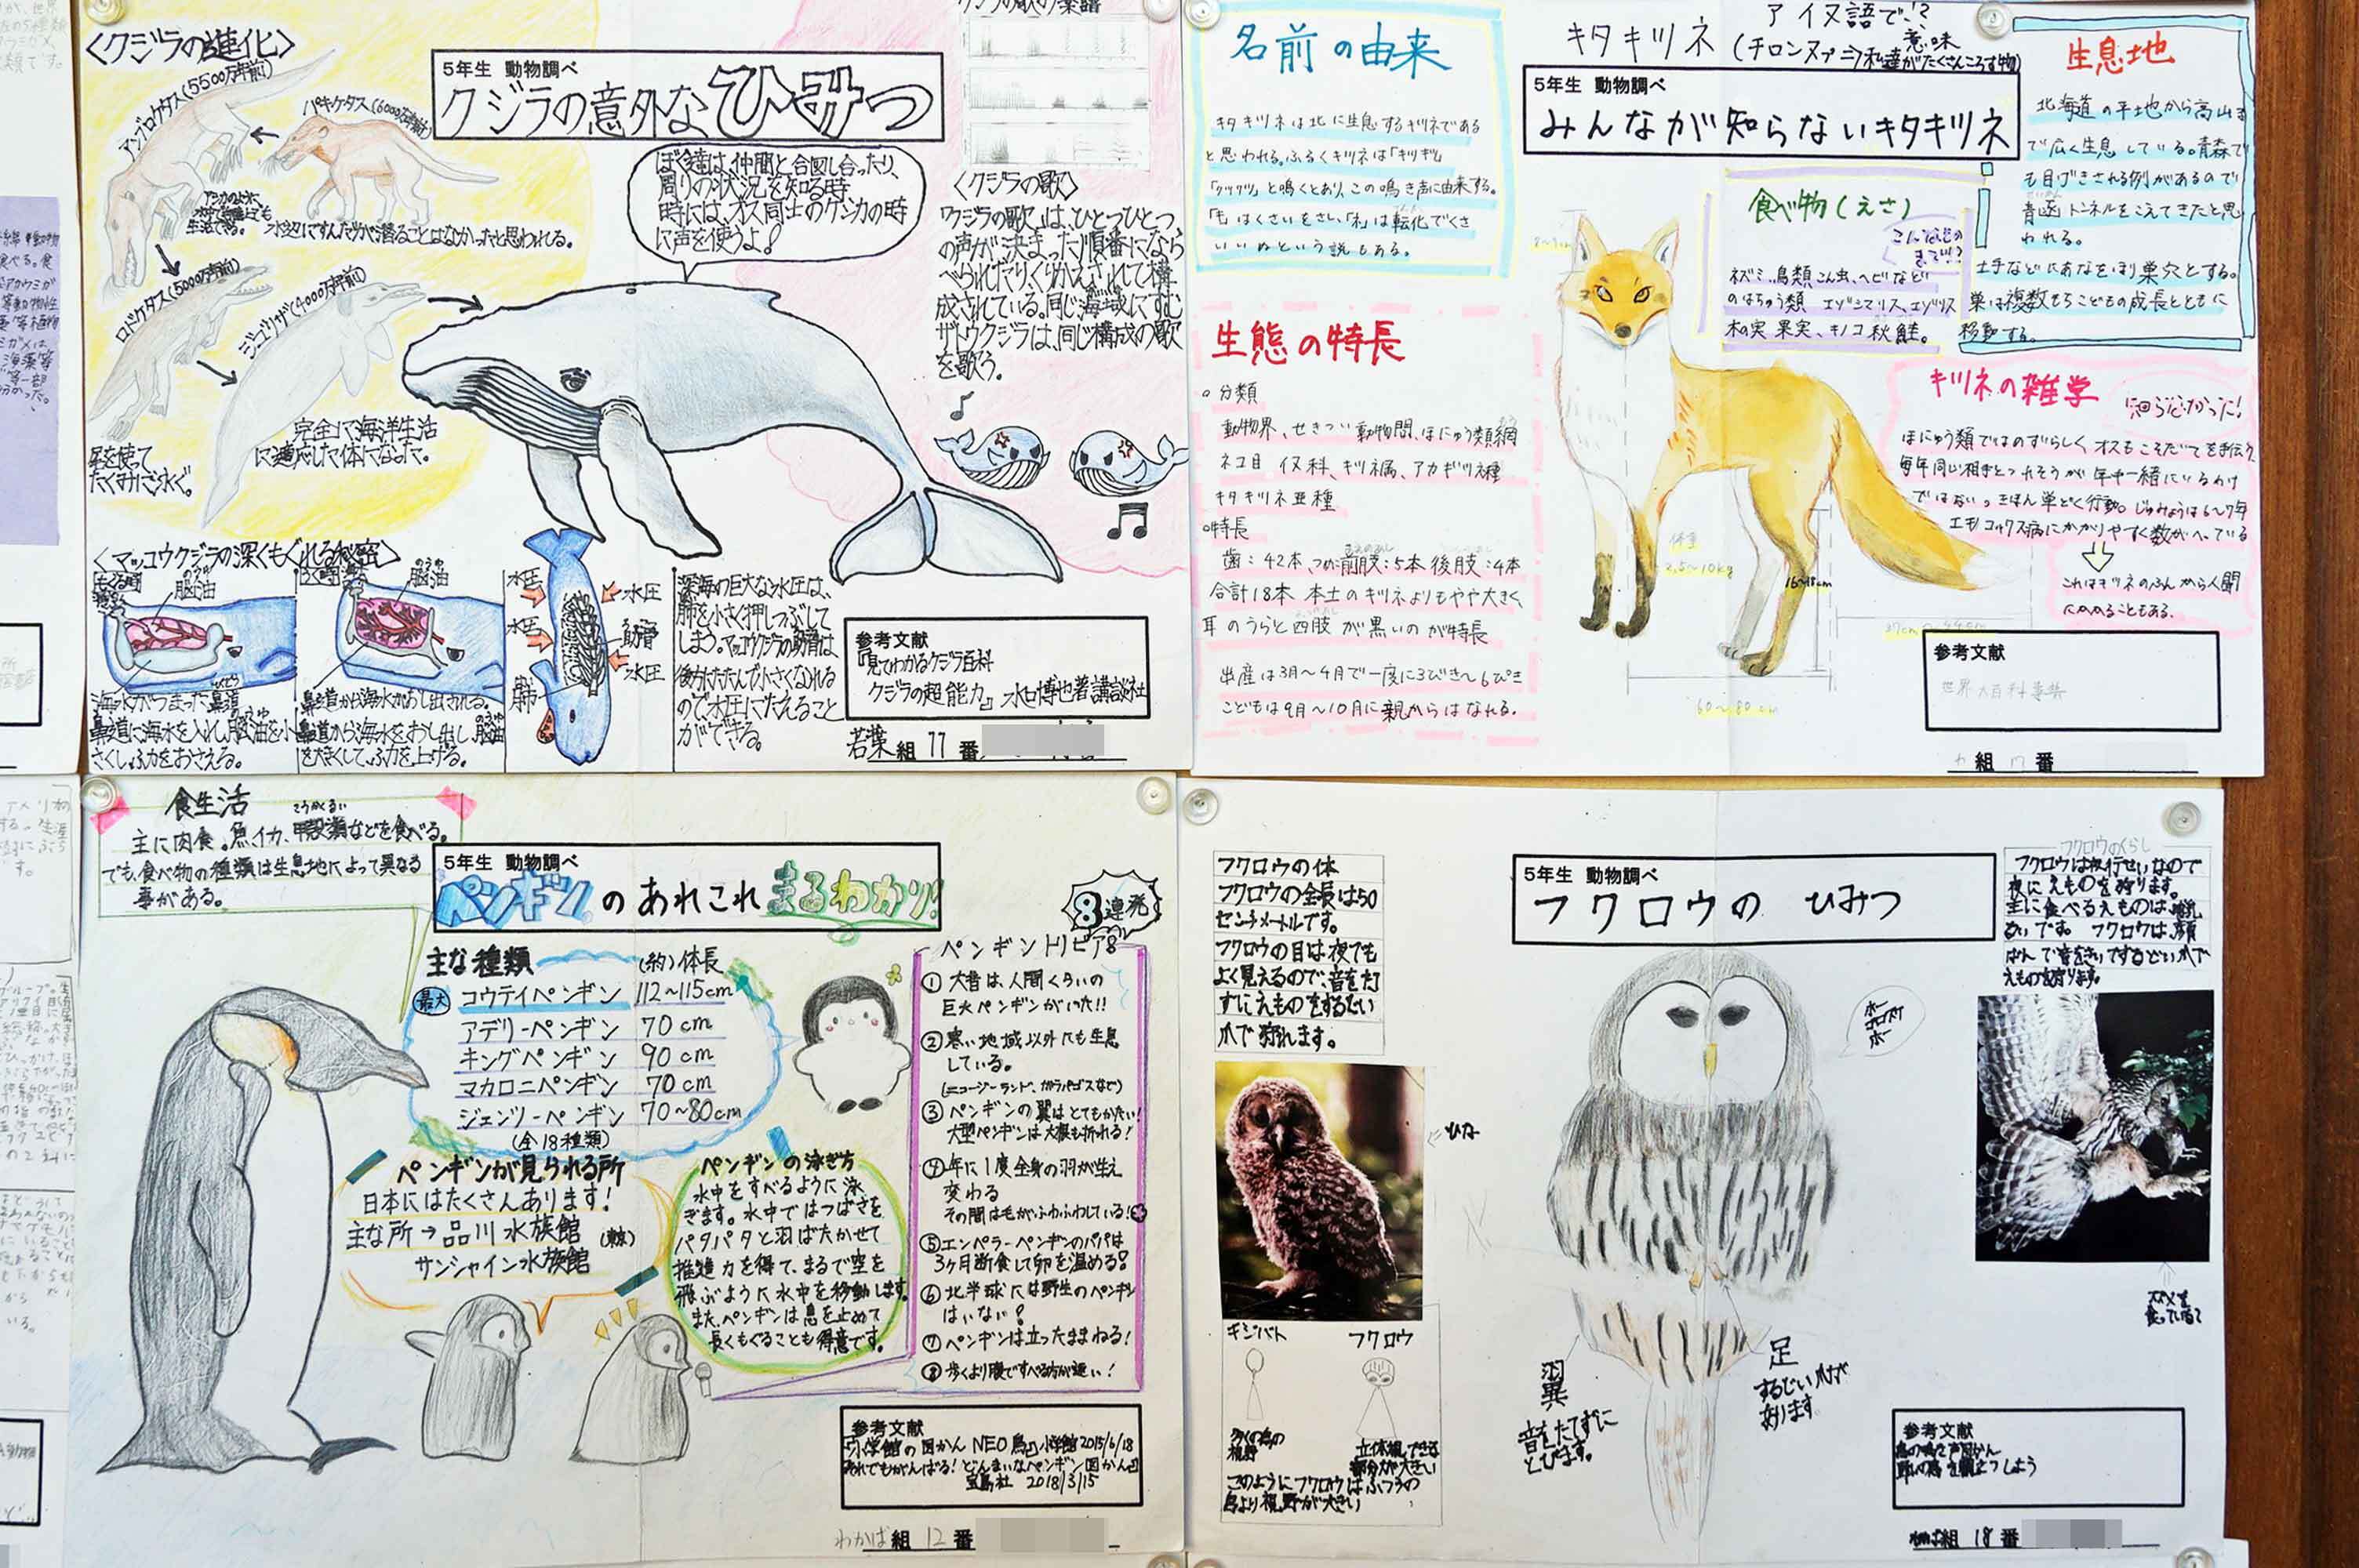 <クジラの進化>
アンブロケタス(5500万年前)
パキケタス(6000万年前)
5年生 動物調べ
クジラの意外なひみつ
ぼく達は、仲間と合図し合ったり、
周りの状況を知る時
時には、オス同士のケンカの時
に声を使うよ!
アシカのように
生活できる。
水辺にすんだりが潜ることはなかったと思われる。
ロドケタス(5000万年前)
ジゴリザ(4000万年前)
尾を使って
たくみに泳ぐ。
完全に海洋生活
に適応した体になった。
<クジラの歌>
『クジラの歌』は、ひとつひとつ
の声が決まった順番になら
べられたり、くりかえされて構
成されている。同じ海域にすむ
ザトウクジラは、同じ構成の歌
を歌う。
<マッコウクジラの深くもぐれる秘密>
脳油
脳油
海水がつまった鼻道
鼻道に海水を入れ、脳油を小
さくし、ふ力をおさえる。
鼻道から海水がおし出される。
鼻道から海水をおし出し、脳油
を大きくして、ふ力を上げる。
水圧
水圧
水圧
肋骨
水圧
肺
深海の巨大な水圧は、
肺を小さく押しつぶして
しまう。マッコウクジラの肋骨は
後方にたたんで小さくなれる
ので水圧にたえること
ができる。
参考文献
『見てわかるクジラ百科
クジラの超能力』 水口博也著 講談社
若葉組 11番
名前の由来
キタキツネは北に生息するキツネである
と思われる。ふるくキツネは「キツキツ」
「クツクツ」と鳴くとあり、この鳴き声に由来する。
「も」はくさいをさい、「ネ」は転化でくさ
いいぬという説もある。
キタキツネ
アイヌ語で!?
意味
(チロンヌプ⇒私達がたくさんころす物)
5年生 動物調べ
みんなが知らないキタキツネ
生息地
北海道の平地から高山ま
で広く生息している。青森で
も目げきされる例があるので
青函トンネルをこえてきたと思
われる。
土手などにあなをほり巣穴とする。
巣は複数もちこどもの成長とともに
移動する。
食べ物(えさ)
こんなもの
まで!?
ネズミ、鳥類こん虫、ヘビなど
のはちゅう類 エゾシマリス、エゾリス
木の実 果実、キノコ 秋鮭。
生態の特長
分類
動物界、せきつい動物門、ほにゅう類綱
ネコ目 イヌ科、キツネ属、アカギツネ種
キタキツネ亜種
特長
歯:42本、つめ:前肢:5本 後肢:4本
合計18本 本土のキツネよりもやや大きく、
耳のうらと四肢が黒いのが特長
出産は3月〜4月で一度に3ぴき〜6ぴき
こどもは9月〜10月に親からはなれる。
キツネの雑学
知らなかった!
ほにゅう類ではめずらしくオスもこそだてを手伝う
毎年同じ相手とつれそうが年中一緒にいるわけ
ではない。きほん単どく行動。じゅみょうは6〜7年
エキノコックス病にかかりやすく数がへっている
これはキツネのふんから人間
にかかることもある。
体重
2.5〜10kg
16〜18cm
60〜80cm
参考文献
世界大百科事典
組 17番
食生活
こうかくるい
主に肉食。魚、イカ、甲殻類などを食べる。
でも、食べ物の種類は生息地によって異なる
事がある。
5年生 動物調べ
ペンギンのあれこれまるわかり!
8連発
主な種類 (約)体長
最大 コウテイペンギン 112〜115cm
アデリーペンギン 70cm
キングペンギン 90cm
マカロニペンギン 70cm
ジェンツーペンギン 70〜80cm
(全18種類)
ペンギンが見られる所
日本にはたくさんあります!
主な所→品川水族館
(東京)
サンシャイン水族館
ペンギンの泳ぎ方
水中をすべるように泳
ぎます。水中ではつばさを
パタパタと羽ばたかせて
推進力を得て、まるで空を
飛ぶように水中を移動します。
また、ペンギンは息を止めて
長くもぐることも得意です。
ペンギントリビア8
①大昔は、人間くらいの
巨大ペンギンがいた!!
②寒い地域以外にも生息
している。
(ニュージーランド、ガラパゴスなど)
③ペンギンの翼はとてもかたい!
大型ペンギンは大根も折れる!
④年に1度全身の羽が生え
変わる
その間は毛がふわふわしている!
⑤エンペラーペンギンのパパは
3ヶ月断食して卵を温める!
⑥北半球には野生のペンギン
はいない!
⑦ペンギンは立ったままねる!
⑧歩くより腹ですべる方が速い!
参考文献
『小学館の図かん NEO 鳥』小学館 2015/6/18
『それでもがんばる!どんまいなペンギン図かん』
宝島社 2018/3/15
わかば組 12番
フクロウの体
フクロウの全長は50
センチメートルです。
フクロウの目は夜でも
よく見えるので、音をた
すにえものをするどい
爪で狩れます。
5年生 動物調べ
フクロウの ひみつ
フクロウのくらし
フクロウは夜行せいなので
夜にえものを狩ります。
主に食べるえものは哺乳
るいです。フクロウは、顔
ばんで音をきいてするどい爪で
えものを狩ります。
ひな
キジバト
フクロウ
多くの鳥の
視野
立体視できる
部分が大きい
このようにフクロウはふつうの
鳥より視野が大きい
翼
音をたてずに
とびます。
足
するどい爪が
あります
参考文献
鳥の鳴き声図かん
組 18番